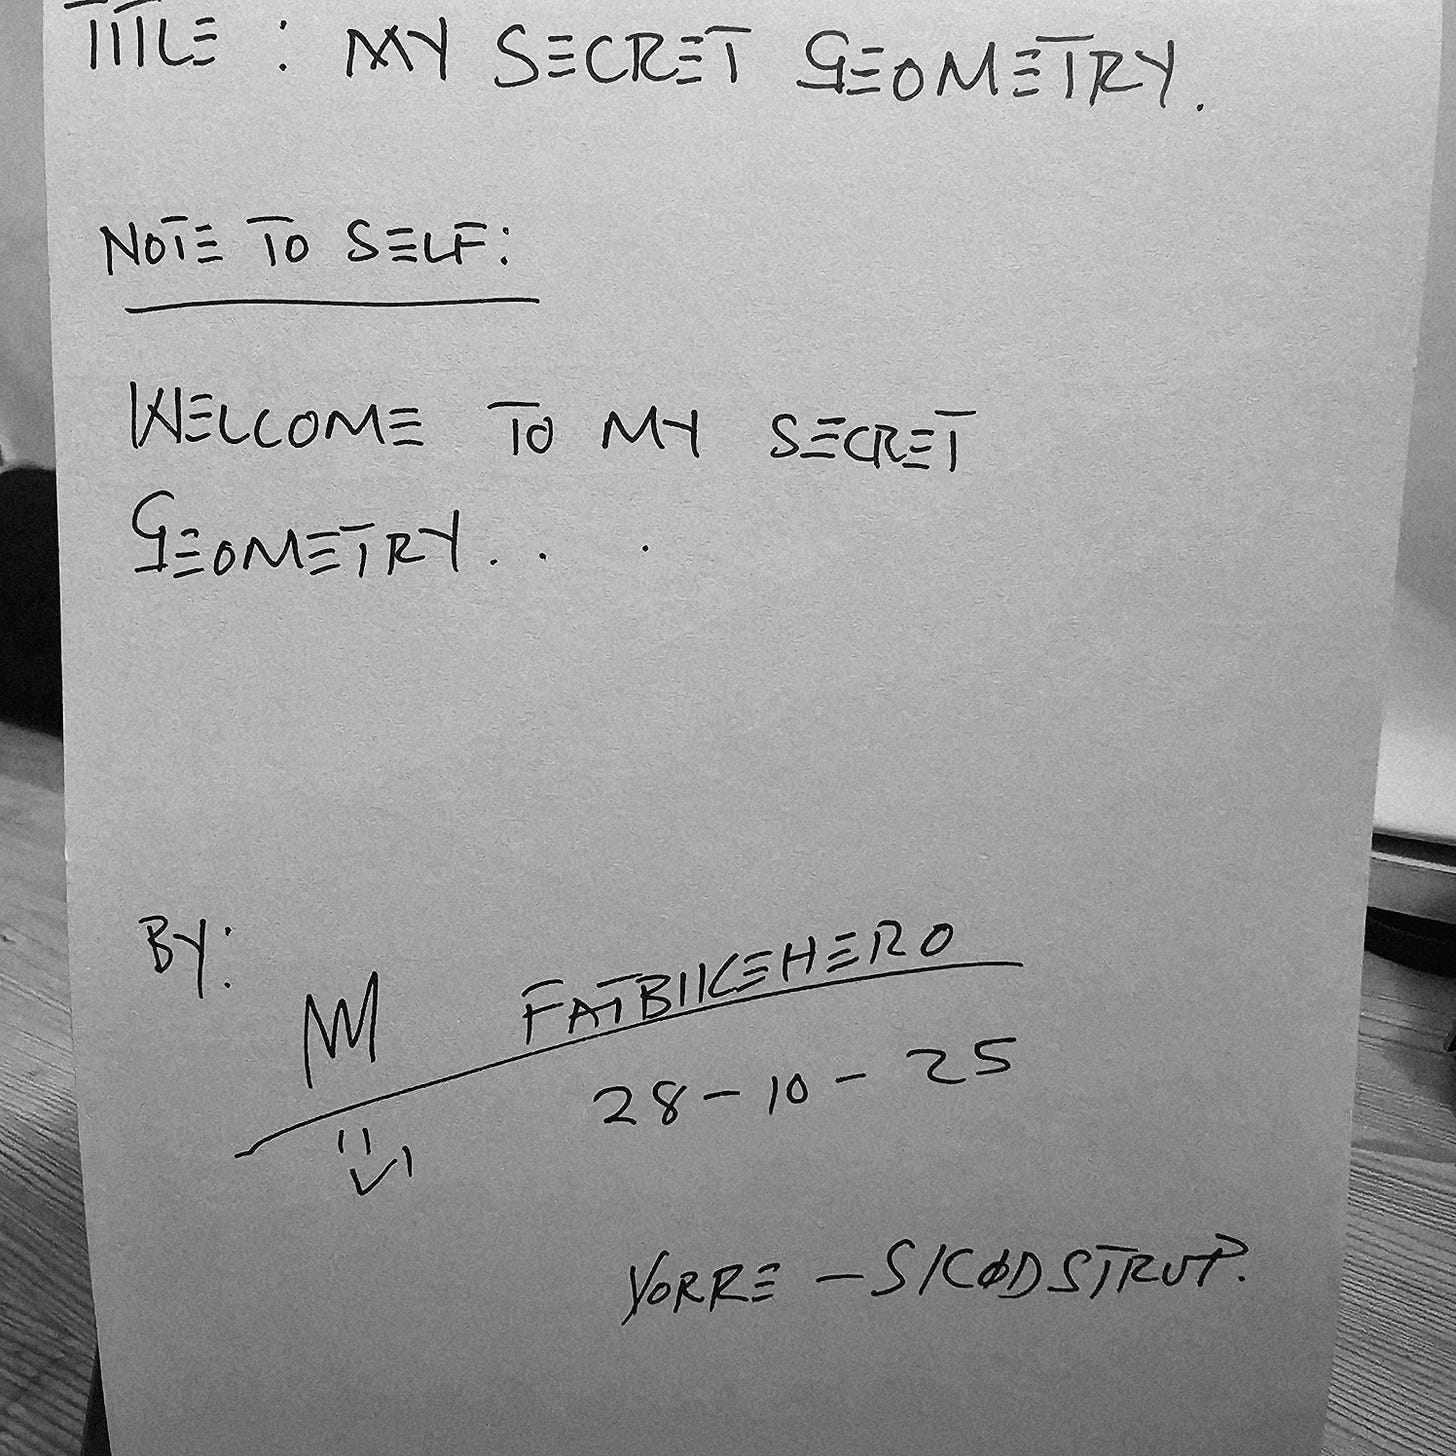 TITLE : MY SECRET GEOMETRY.
NOTE TO SELF:
WELCOME TO MY SECRET
GEOMETRY. . .
BY:
FATBIKEHERO
28-10-25
VORRE - SKØDSTRUP.